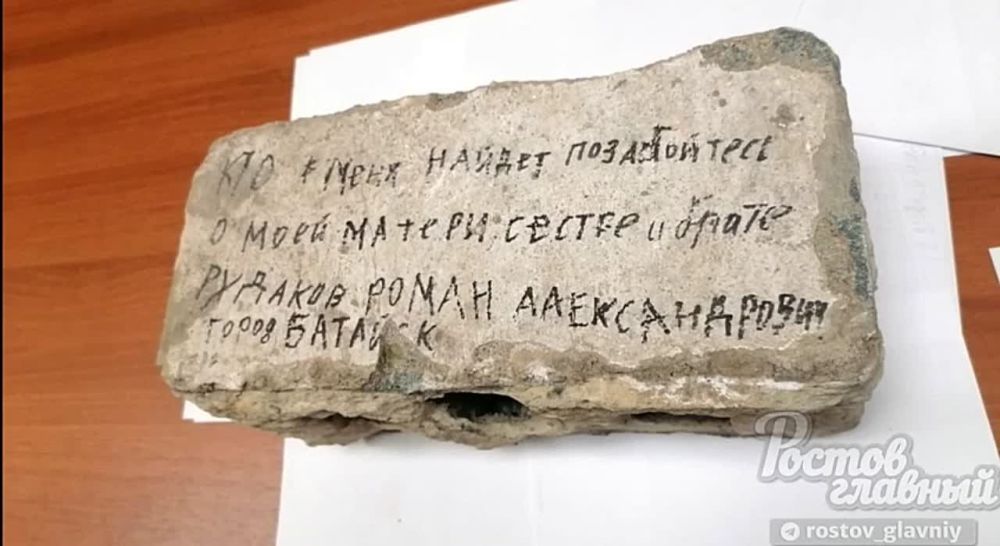 КТО меня НАЙДЕТ ПОЗАБОЙТЕСЬ
О МОЕЙ МАТЕРИ, СЕСТРЕ и брате
РУДАКОВ РОМАН ААЕКСАНДРОВИЧ
ГОРОД БАТАЙСК
Ростов
главный
rostov_glavniy